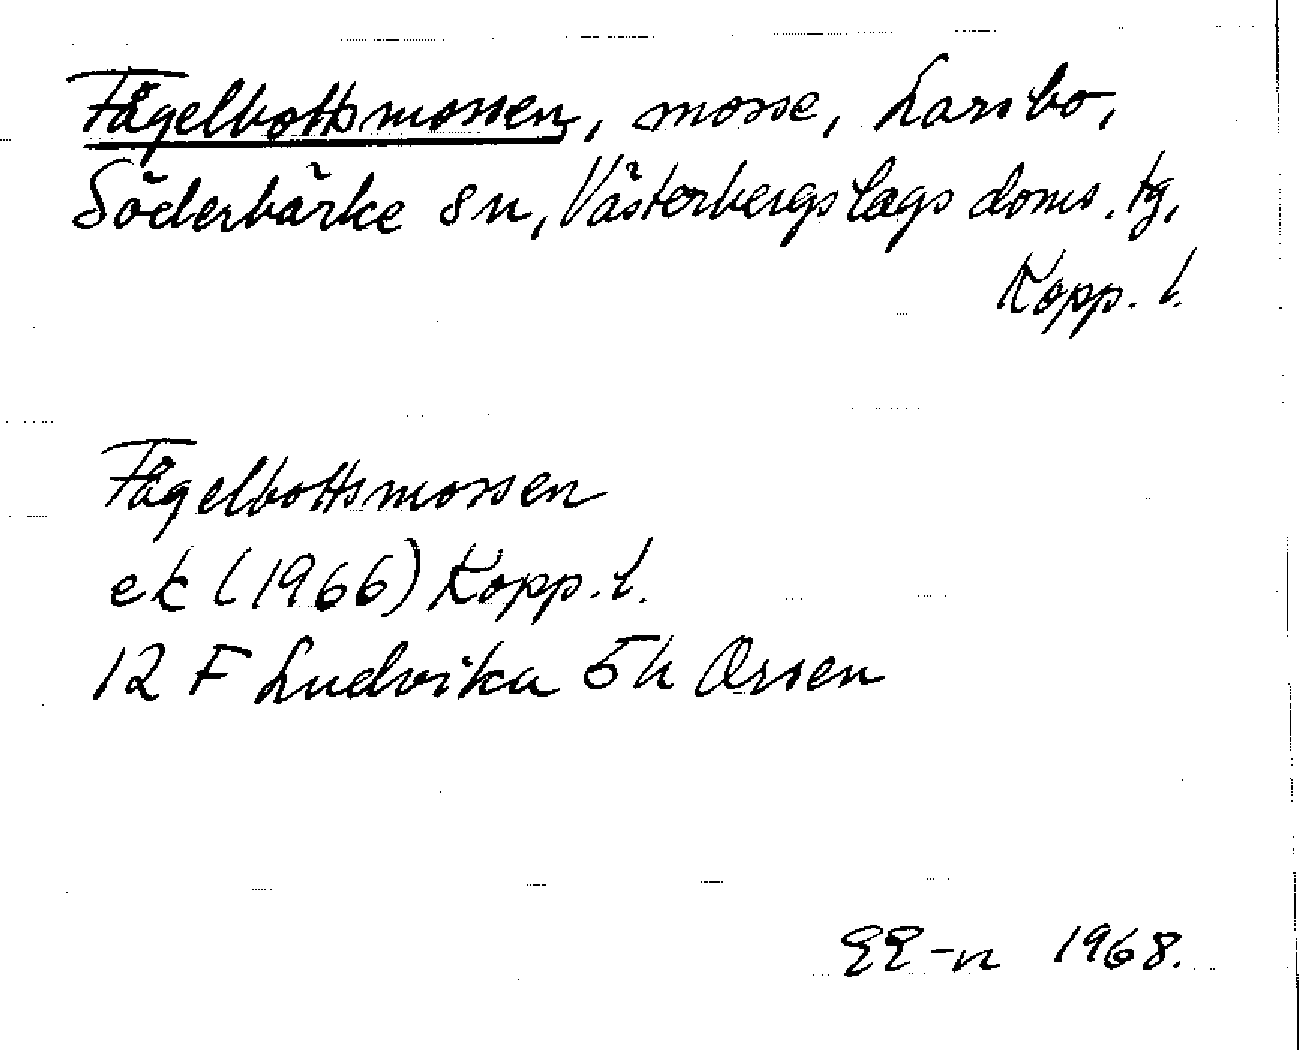 Fågelbottsmossen, mosse, Larsbo,
Söderbärke sn, Västerbergslags doms. tg,
Kopp. l.
Fågelbottsmossen
ek (1966) Kopp. l.
12 F Ludvika 5h Orsen
EE-n 1968.